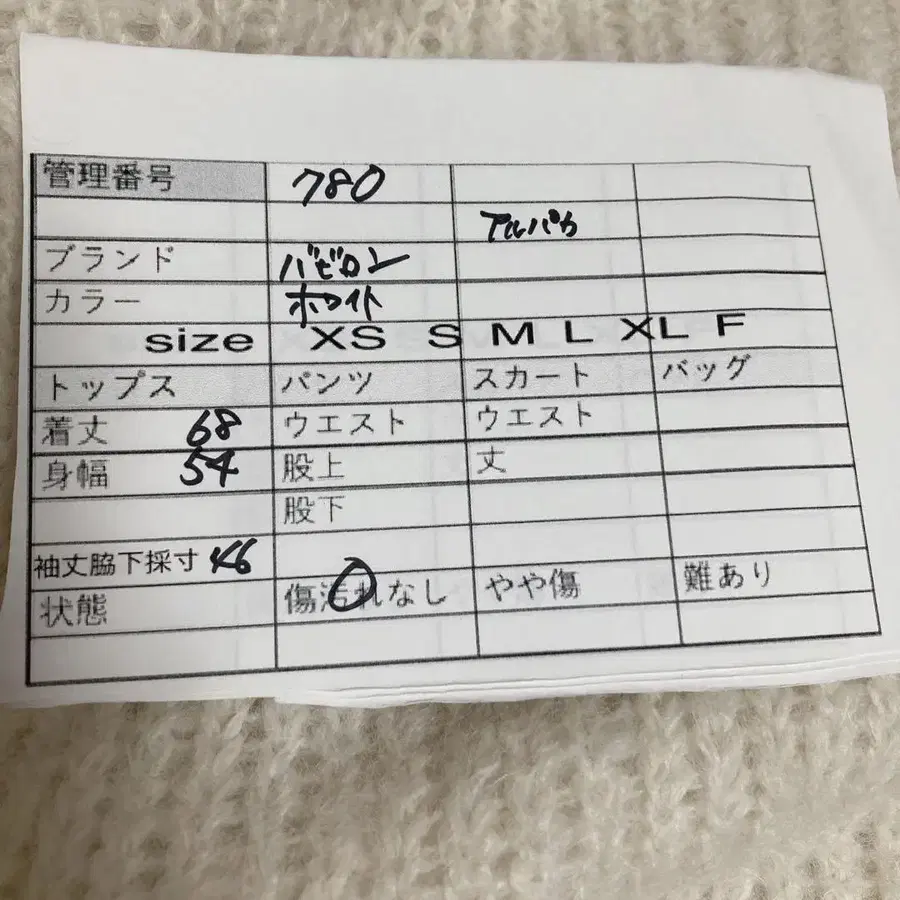 管理番号 780
アルパカ
ブランド バビロン
カラー ホワイト
size XS S M L XL F
トップス パンツ スカート バッグ
着丈 68 ウエスト ウエスト
身幅 54 股上 丈
股下
袖丈脇下採寸 46
状態 傷汚れなし やや傷 難あり